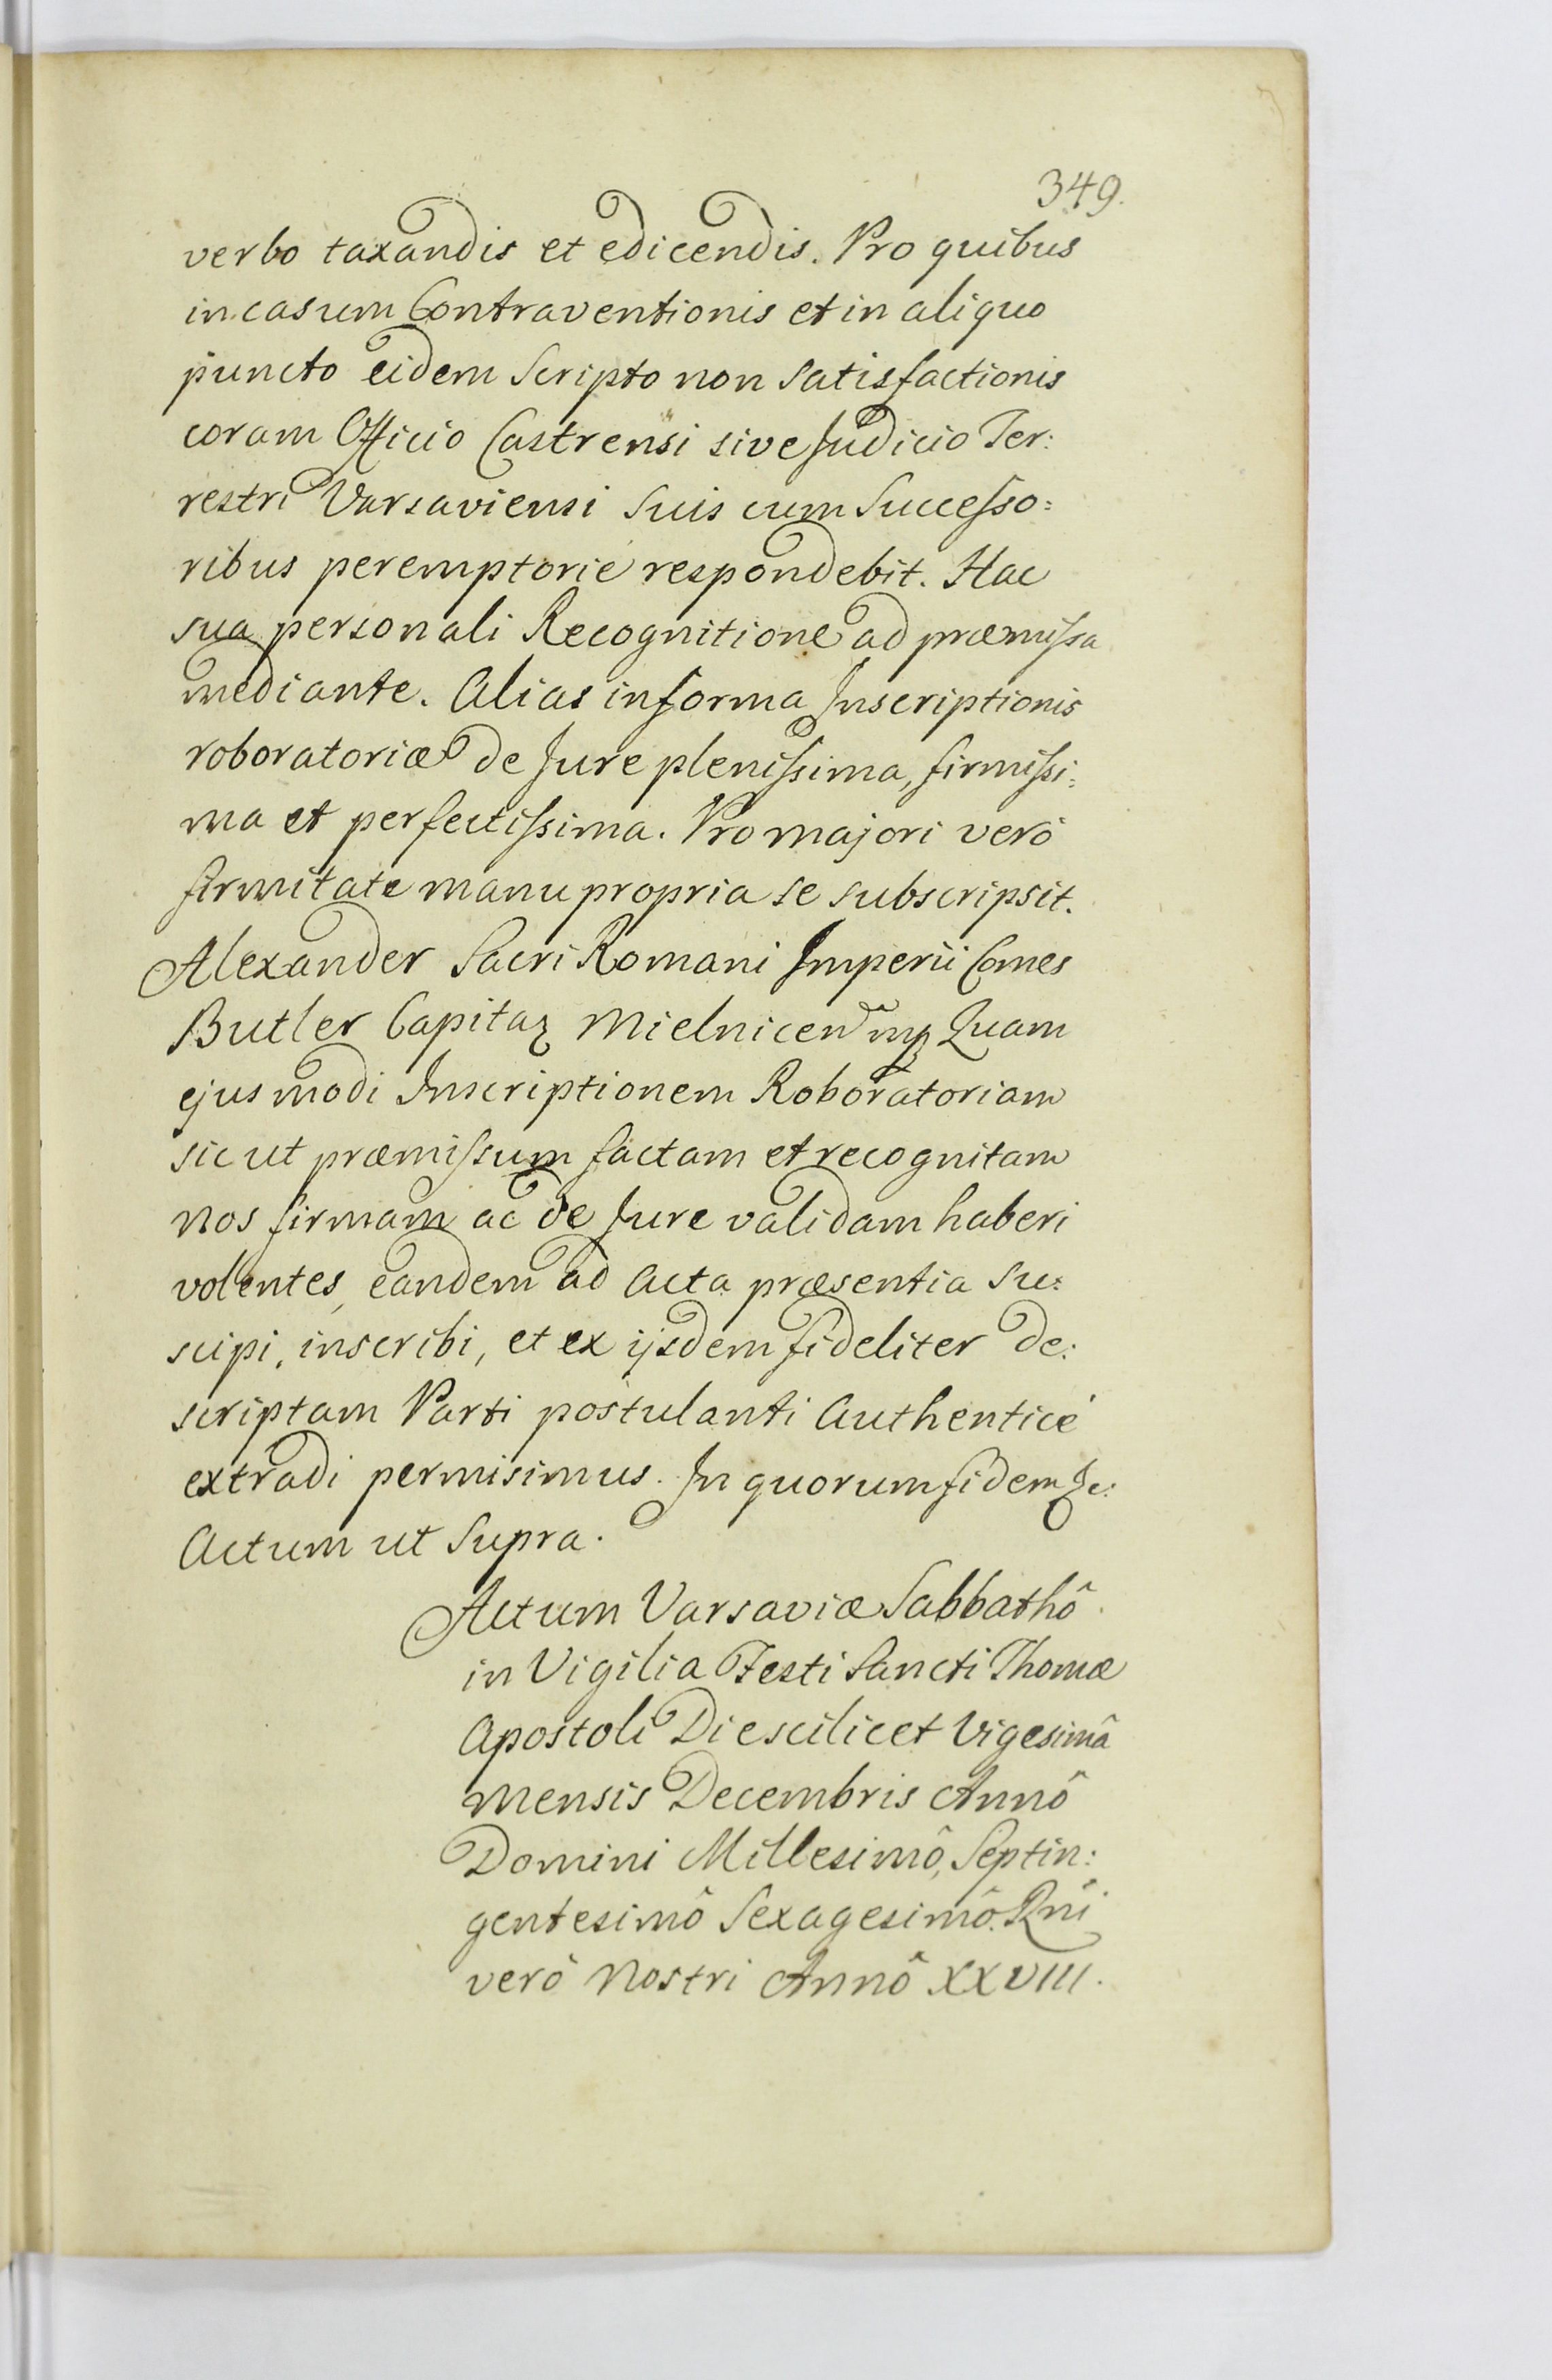 349.
verbo taxandis et edicendis. Pro quibus
in casum Contraventionis et in aliquo
puncto eidem Scripto non Satisfactionis
coram Officio Castrensi sive Judicio Ter:
restri Varsaviensi Suis cum Succeſso:
ribus peremptorié respondebit. Hac
sua personali Recognitione ad præmiſsa
mediante. Alias in forma Inscriptionis
roboratoriæ de Jure pleniſsima, firmiſsi:
ma et perfectiſsima. Pro majori verò
firmitate manu propria se subscripsit.
Alexander Sacri Romani Imperii Comes
Butler Capitaz Mielnicen mp Quam
ejusmodi Inscriptionem Roboratoriam
sicut præmiſsum factam et recognitam
nos firmam ac de Jure validam haberi
volentes, eandem ad Acta præsentia Su:
scipi, inscribi, et ex ijsdem fideliter de:
scriptam Parti postulanti Authenticé
extradi permisimus. In quorum fidem &c:
Actum ut Supra.
Actum Varsaviæ Sabbathô
in Vigilia Festi Sancti Thomæ
Apostoli Die scilicet Vigesimâ
Mensis Decembris Annô
Domini Millesimô, Septin:
gentesimô Sexagesimô. Rñi
verò Nostri Annô XXVIII.